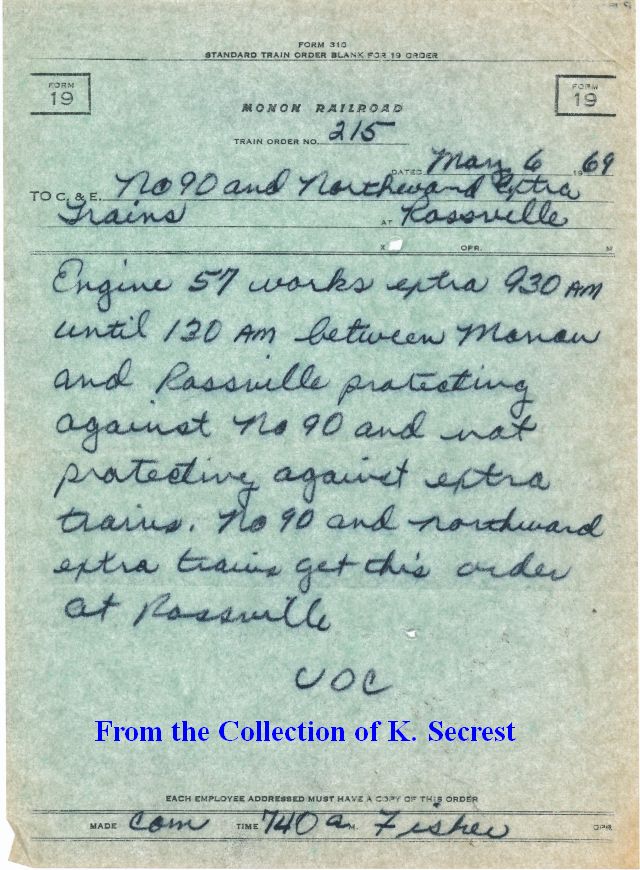 FORM 310
STANDARD TRAIN ORDER BLANK FOR 19 ORDER
FORM 19
FORM 19
MONON RAILROAD
TRAIN ORDER NO. 215
DATED May 6 1969
TO C. & E. No 90 and Northward Extra
Trains AT Rossville
X OPR. M
Engine 57 works extra 930 AM
until 130 AM between Monon
and Rossville protecting
against No 90 and not
protecting against extra
trains. No 90 and northward
extra trains get this order
at Rossville
From the Collection of K. Secrest
EACH EMPLOYEE ADDRESSED MUST HAVE A COPY OF THIS ORDER
MADE Com TIME 740 a M. Fisher OPR.